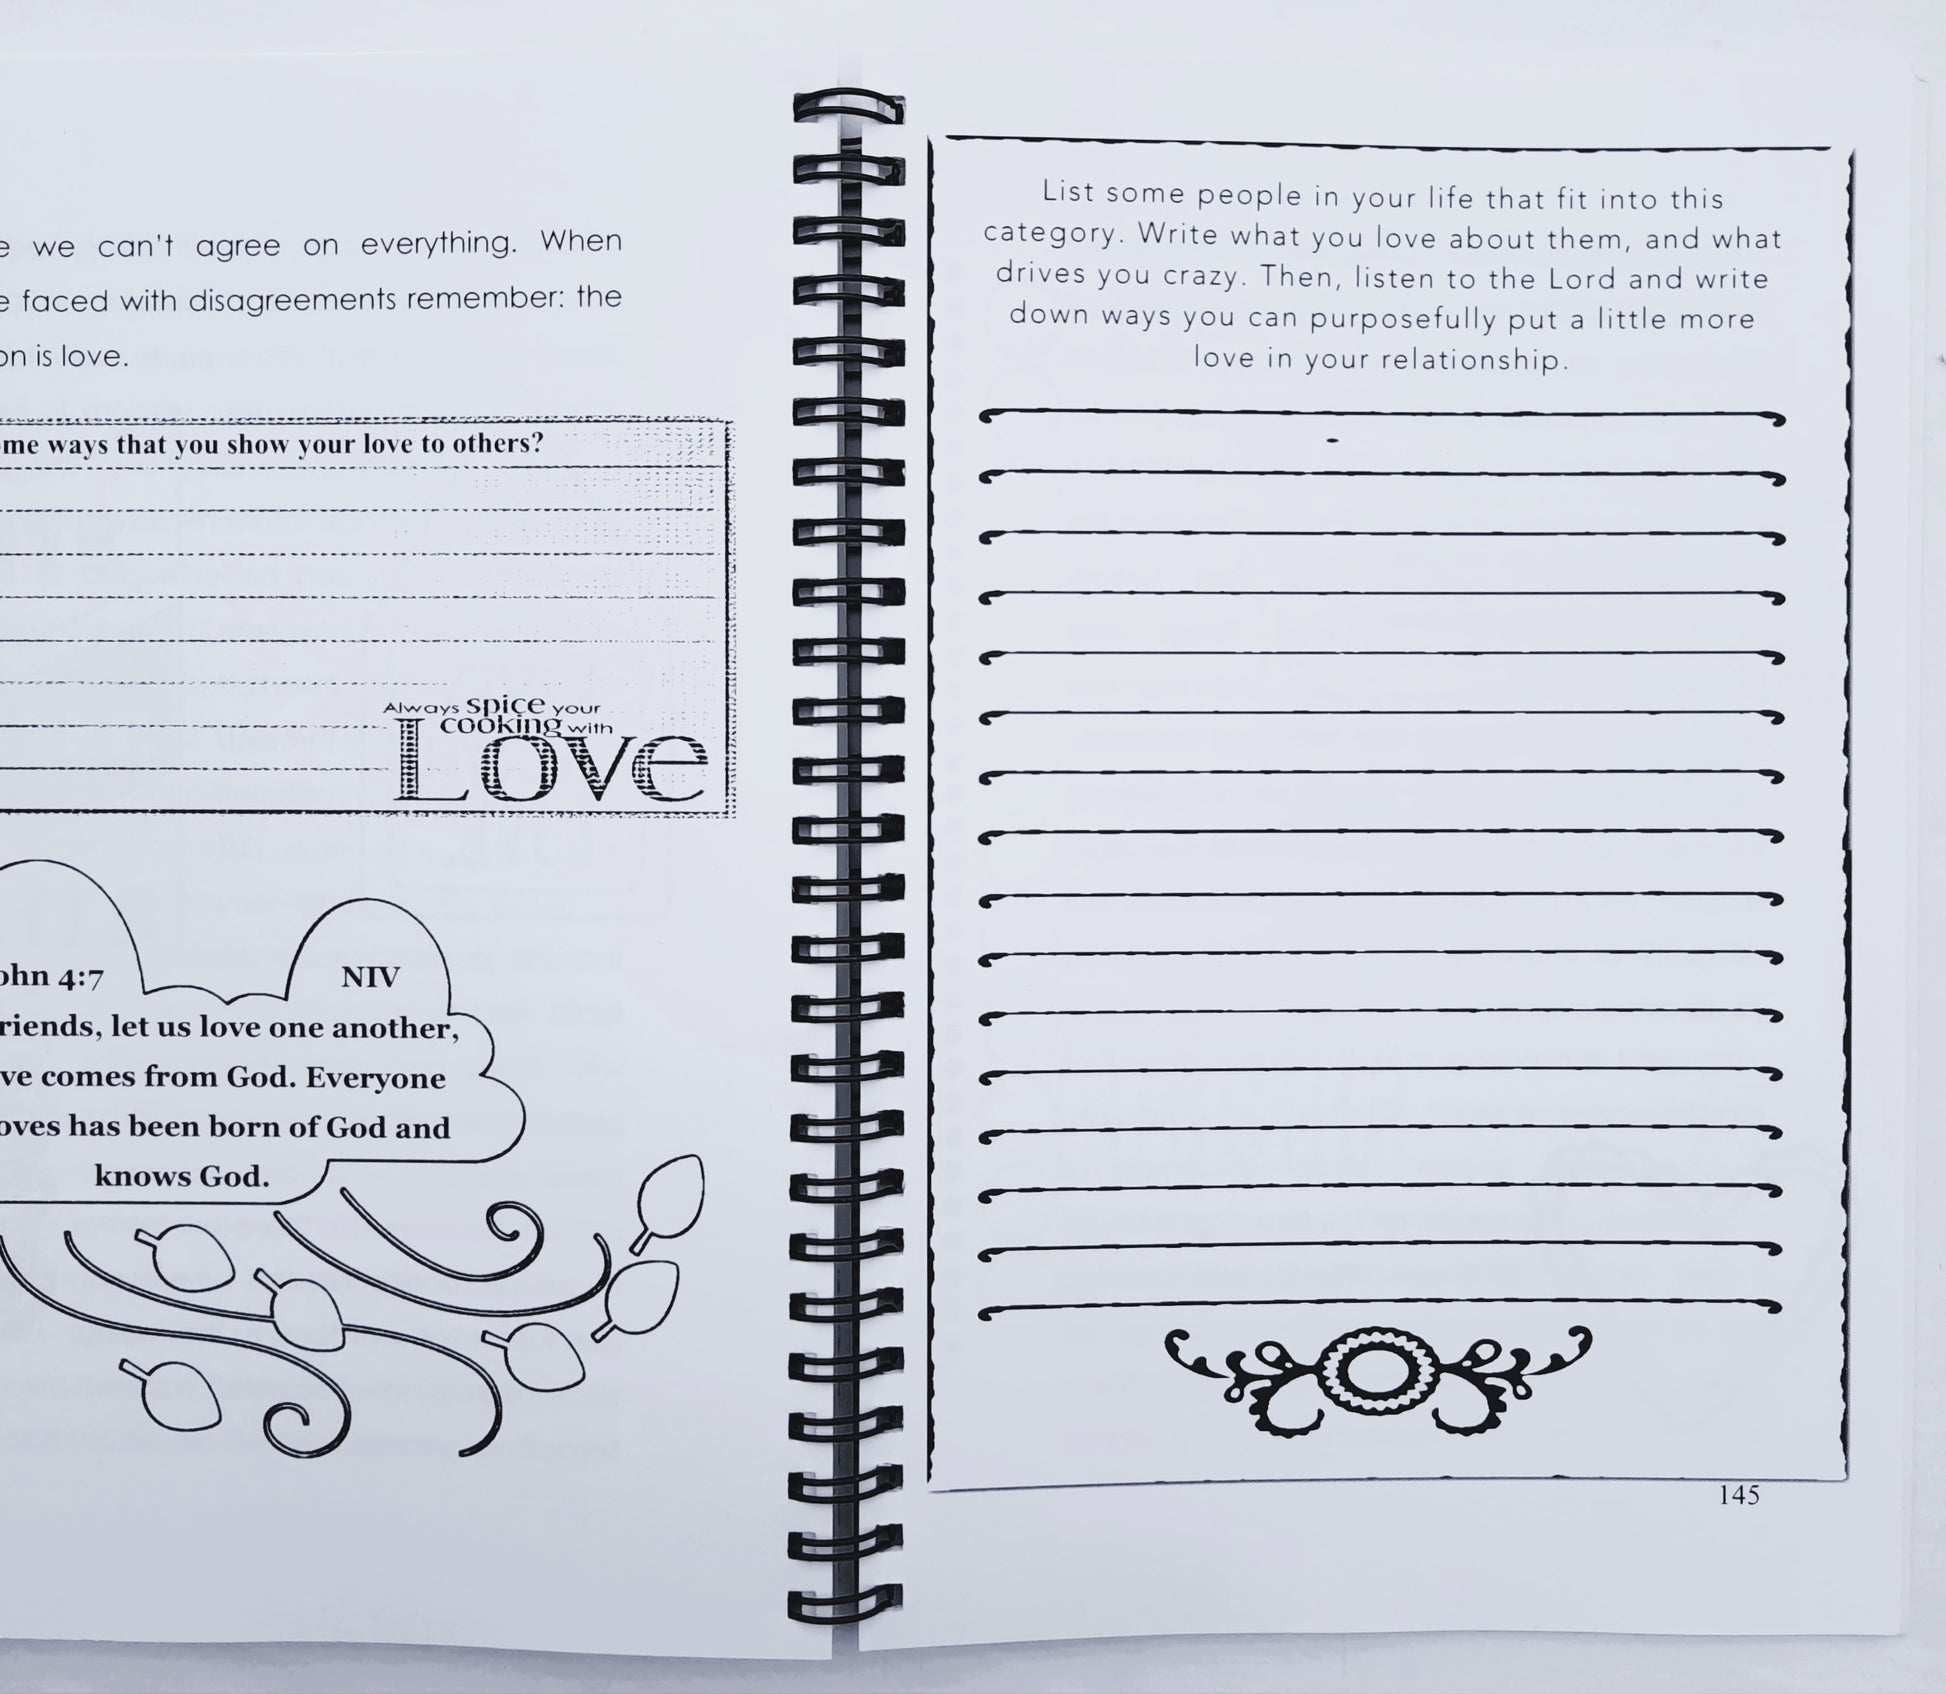 we can't agree on everything. When
faced with disagreements remember: the
is love.
ways that you show your love to others?
Always spice your
cooking with
Love
4:7 NIV
let us love one another,
comes from God. Everyone
has been born of God and
knows God.
List some people in your life that fit into this
category. Write what you love about them, and what
drives you crazy. Then, listen to the Lord and write
down ways you can purposefully put a little more
love in your relationship.
145